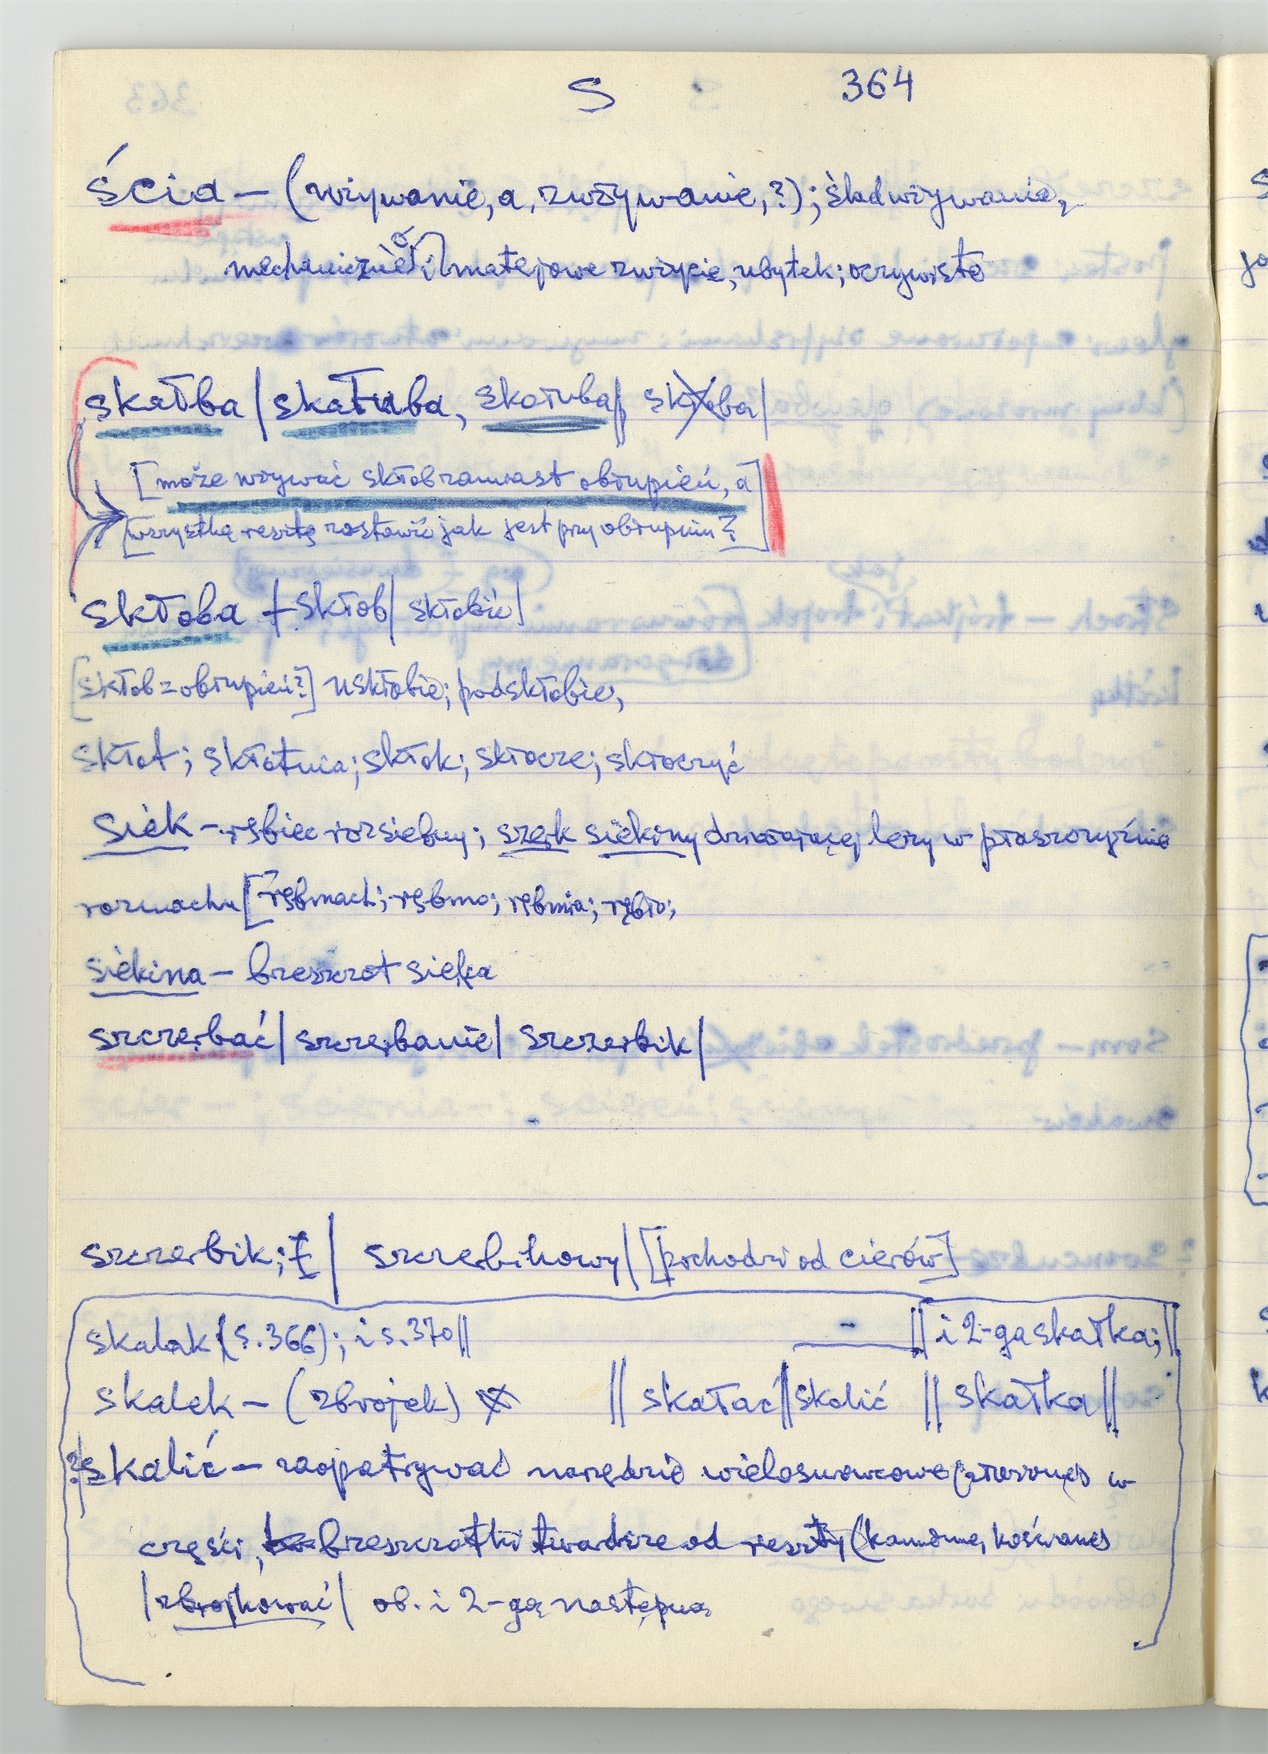 S 364
ścia – (używanie, a, zużywanie, ?); ślad używania,
mechaniczne i zużycie, ubytek; oczywiste
skałba | skałuba, skołuba | skłoba |
[może używać skłob zamiast obłupień, a]
[wszystką resztę zostawić jak jest przy obłupniu?]
skłoba + skłob | skłobić |
[skłob z obłupień?] uskłobie; podskłobie,
skłot; skłotnia; skłok; skłocze; skłoczyć
siek – rębiec rozsiebny; szęk siekiny działającej leży w płaszczyźnie
rozmachu [rębmach; rębmo; rębmia; rębło;
siekina – brzeszczot sieka
szczerbać | szczerbanie | szczerbik |
szczerbik; ł | szczerbikowy | [pochodzi od cierów]
skalak (s. 366); i s. 370 || – || i 2-ga skałka; ||
skalek – (zbrojek) || skałać || skalić || skałka ||
? skalić – zaopatrywać narzędzie wielosurowcowe w
części, brzeszczotki twardsze od reszty (kamienne, kościane)
| zbrojkować | ob. i 2-gą następną